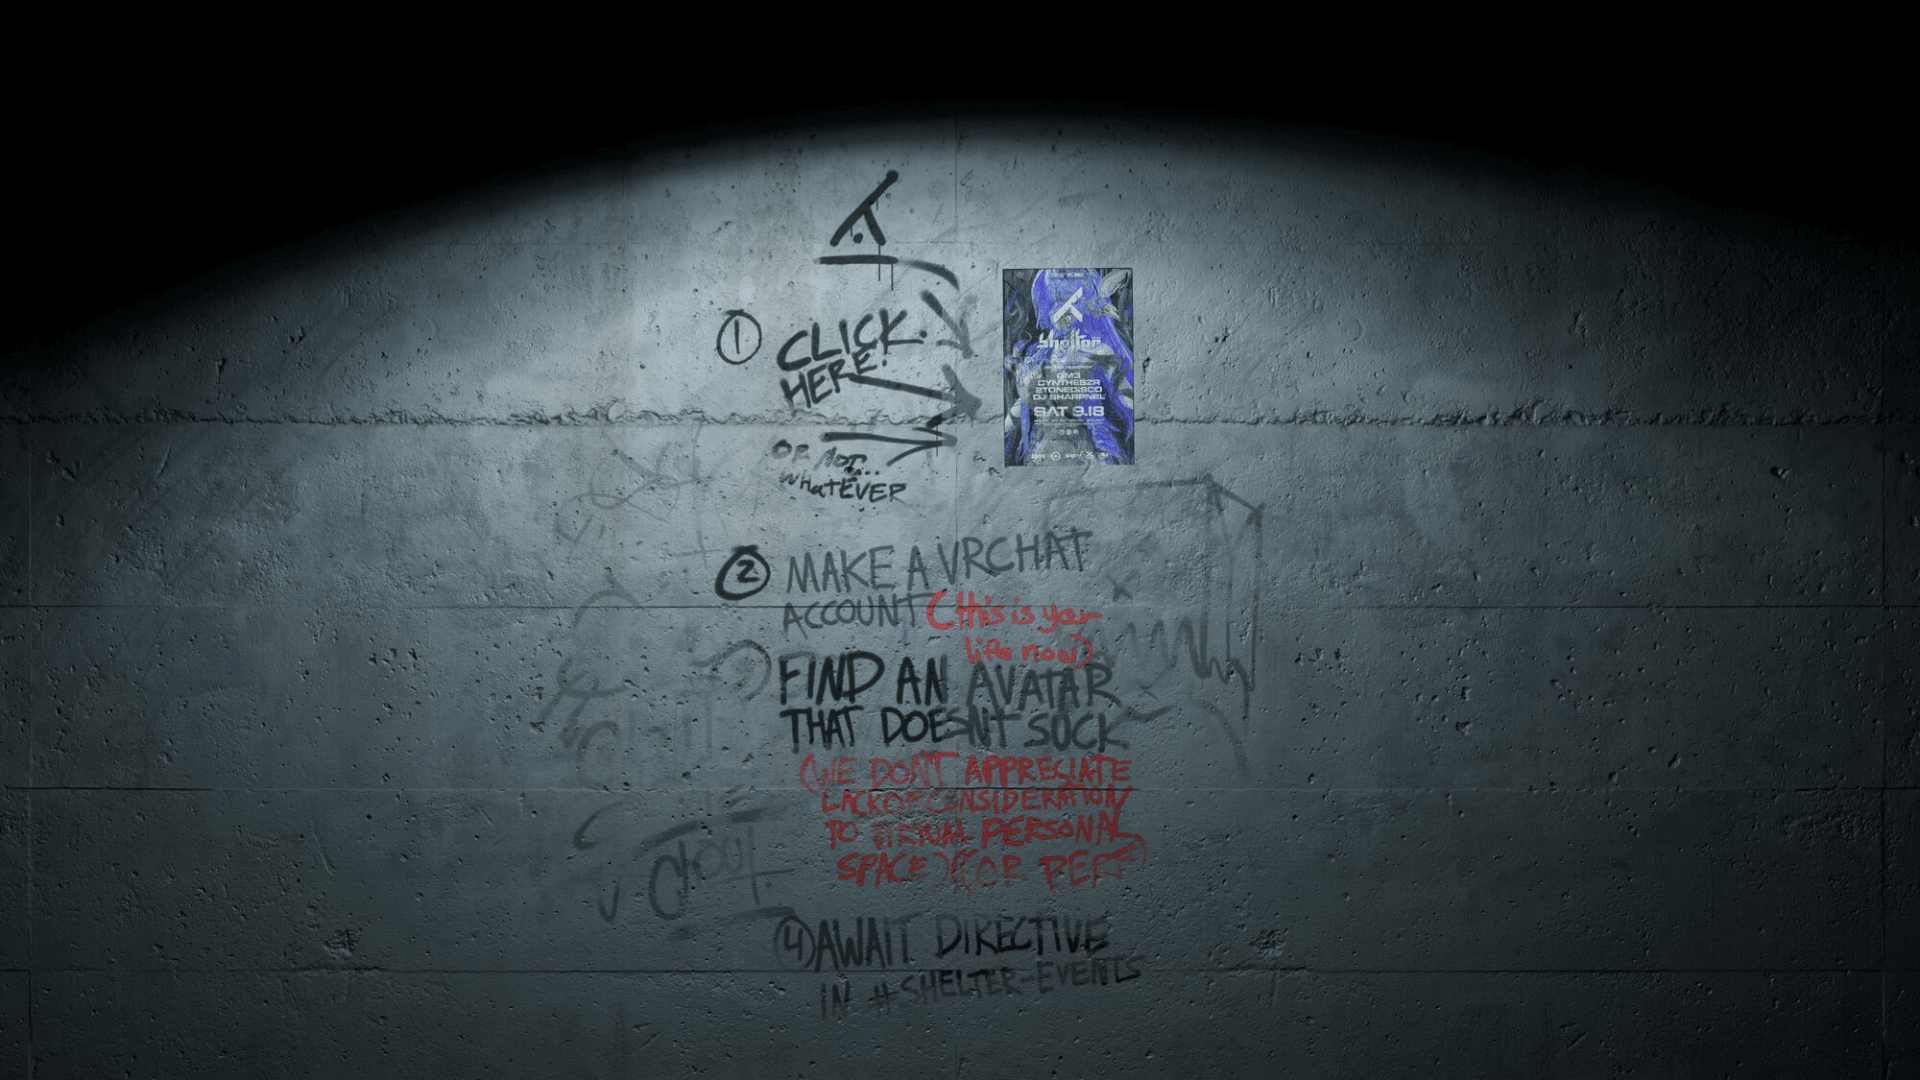 1 CLICK
HERE!
OR NOT...
WHATEVER
Shelter
CYNTHESZR
STONEDISCO
DJ SHARPNEL
SAT 9.18
2 MAKE A VRCHAT
ACCOUNT (this is your
life now)
FIND AN AVATAR
THAT DOESNT SUCK
(WE DON'T APPRECIATE
LACK OF CONSIDERATION
TO VIRTUAL PERSONAL
SPACE) (OR PERF)
4 AWAIT DIRECTIVE
IN #SHELTER-EVENTS